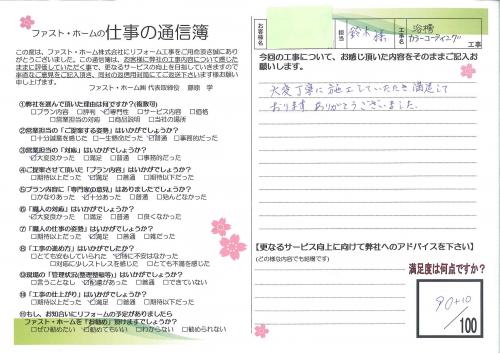 ファスト・ホームの仕事の通信簿
この度は、ファスト・ホーム株式会社にリフォーム工事をご用命頂き誠にあり
がとうございました。この通信簿は、お客様に弊社の工事内容について感じた
ままに評価していただく事で、更なるサービスの向上を目指していきますので
率直なご意見をご記入頂き、同封の返信用封筒にてご返送下さいます様お願い
申し上げます。
ファスト・ホーム㈱ 代表取締役 藤原 学
①弊社を選んで頂いた理由は何ですか?(複数可)
□プラン内容 □評判 ☑専門性 □サービス内容 □価格
□営業担当の対応 □商品説明 □当社の場所
②営業担当の「ご提案する姿勢」はいかがでしょうか?
□十分誠意を感じた □一生懸命だった ☑普通 □事務的だった
③営業担当の「対応」はいかがでしょうか?
☑大変良かった □満足 □普通 □事務的だった
④ご提案させて頂いた「プラン内容」はいかがでしたか?
□期待以上だった ☑満足 □普通 □期待以下だった
⑤プラン内容に「専門家の意見」はありましたでしょうか?
□かなりあった ☑十分あった □普通 □殆んどなかった
⑥「職人の対応」はいかがでしょうか?
☑大変良かった □満足 □普通 □良くなかった
⑦「職人の仕事の姿勢」はいかがでしょうか?
□期待以上だった ☑満足 □普通 □雑だった
⑧「工事の進め方」はいかがでしたか?
□とても安心していられた ☑特に不安はなかった
□対応に少しストレスを感じた □とても不満を感じた
⑨現場の「管理状況(整理整頓等)」はいかがでしょうか?
□言うことなし ☑配慮があった □普通 □できていない
⑩「工事の仕上がり」はいかがでしょうか?
□期待以上だった ☑満足 □普通 □期待以下だった
⑪もし、お知合いにリフォームの予定がありましたら
ファスト・ホームを『お勧め』頂けますでしょうか?
□ぜひ勧めたい ☑勧めてもいい □わからない □勧められない
お客様名
担当
鈴木様
工事名
浴槽
カラーコーティング
工事
今回の工事について、お感じ頂いた内容をそのままご記入お
願いします。
大変丁寧に施工していただき満足して
おります ありがとうございました。
【更なるサービス向上に向けて弊社へのアドバイスを下さい】
(どの様な内容でも結構です)
満足度は何点ですか?
90+10
/100